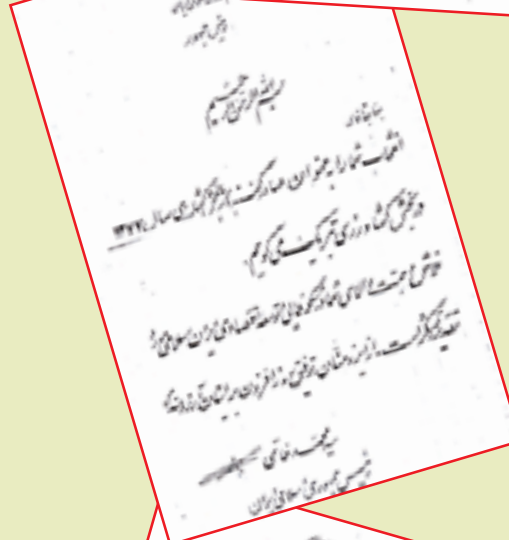 رئیس جمهور
بسم الله الرحمن الرحیم
جناب آقای
انتخاب شما را به عنوان صادرکننده نمونه سال ۱۳۷۷
در بخش کشاورزی تبریک می گویم.
تلاش و همت والای شما در شکوفایی توسعه اقتصادی ایران اسلامی
از ایزد منان توفیق روزافزون
سید محمد خاتمی
رئیس جمهوری اسلامی ایران